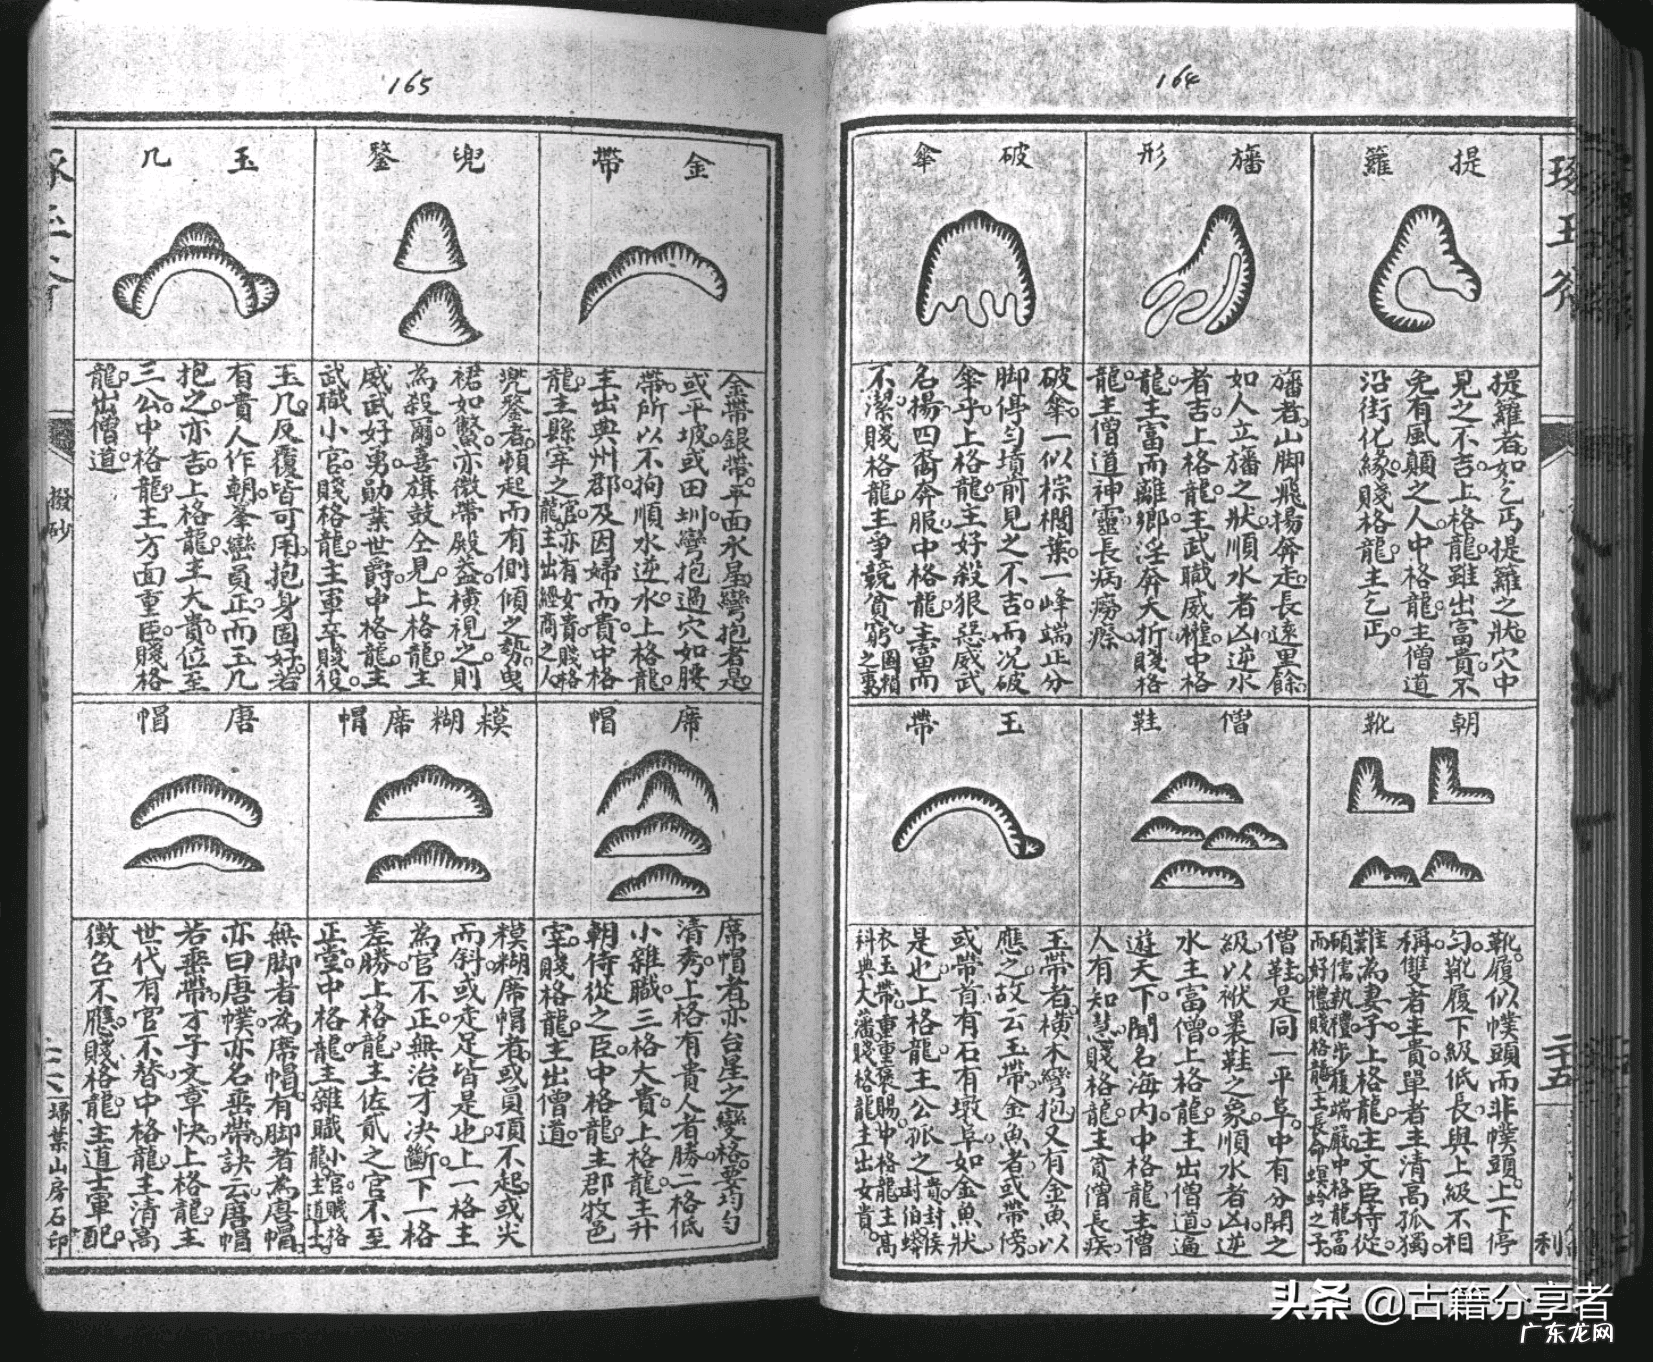 164
提籮
提籮者。如乞丐提籮之狀。穴中
見之不吉。上格龍。雖出富貴。不
免有風顛之人。中格龍。主僧道
沿街化緣。賤格龍。主乞丐。
旛形
旛者。山脚飛揚奔走。長遠里餘。
如人立旛之狀。順水者凶。逆水
者吉。上格龍。主武職威權。中格
龍。主富而離鄉。淫奔夭折。賤格
龍。主僧道神靈。長病癆瘵。
破傘
破傘。一似棕櫚葉。一峰端正。分
脚停勻。墳前見之不吉。而况破
傘乎。上格龍。主好殺狠惡。威武
名揚。四裔奔服。中格龍。主富而
不潔。賤格龍。主爭競貧窮。圖賴之事。
朝靴
靴。履似幞頭而非幞頭。上下停
勻。靴履下級低長。與上級不相
稱。雙者主貴。單者主清高孤獨。
難為妻子。上格龍。主文臣侍從。
碩儒執禮。步履端嚴。中格龍。富
而好禮。賤格龍。主長命螟蛉之子。
僧鞋
僧鞋。是同一平阜。中有分開之
級。以袱裹鞋之象。順水者凶。逆
水主富僧。上格龍。主出僧道。遍
遊天下。聞名海內。中格龍。主僧
人有知慧。賤格龍。主貧僧長疾。
玉帶
玉帶者。橫木彎抱。又有金魚以
應之。故云玉帶金魚者。或帶傍。
或帶首有石有墩阜如金魚狀
是也。上格龍。主公孤之貴。封侯封伯。蟒
衣玉帶。重重褒賜。中格龍。主高
科典大藩。賤格龍。主出女貴。
琢玉斧
二十五
利
165
金帶
金帶銀帶。平面水星彎抱者是。
或平坡或田圳彎抱過穴如腰
帶。所以不拘順水逆水。上格龍。
主出典州郡。及因婦而貴。中格
龍。主縣宰之官。亦有女貴。賤格龍。主出經商之人
兜鍪
兜鍪者。頓起而有側傾之勢。曳
裙如鱉。亦微帶殿益。橫視之則
為殺。爾喜旗鼓仝見。上格龍。主
威武好勇。勛業世爵。中格龍。主
武職小官。賤格龍。主軍卒賤役。
玉几
玉几。反覆皆可用。抱身固好。若
有貴人作朝。峯巒員正。而玉几
抱之亦吉。上格龍。主大貴。位至
三公。中格龍。主方面重臣。賤格
龍。出僧道。
席帽
席帽者。亦台星之變格。要均勻
清秀。上格有貴人者勝。一格低
小雜職。三格大貴。上格龍。主升
朝侍從之臣。中格龍。主郡牧邑
宰。賤格龍。主出僧道
模糊席帽
模糊席帽者。或員頂不起。或尖
而斜。或走足皆是也。上一格主
為官不正。無治才决斷。下一格
差勝。上格龍。主佐貳之官。不至
正堂。中格龍。主雜職小官。賤格龍。主道士。
唐帽
無脚者為席帽。有脚者為唐帽。
亦曰唐幞。亦名垂帶。訣云。唐帽
若垂帶。才子文章快。上格龍。主
世代有官不替。中格龍。主清高
徵名不應。賤格龍。主道士軍配。
撥砂
二六
埽葉山房石印
头条 @古籍分享者
广东龙网